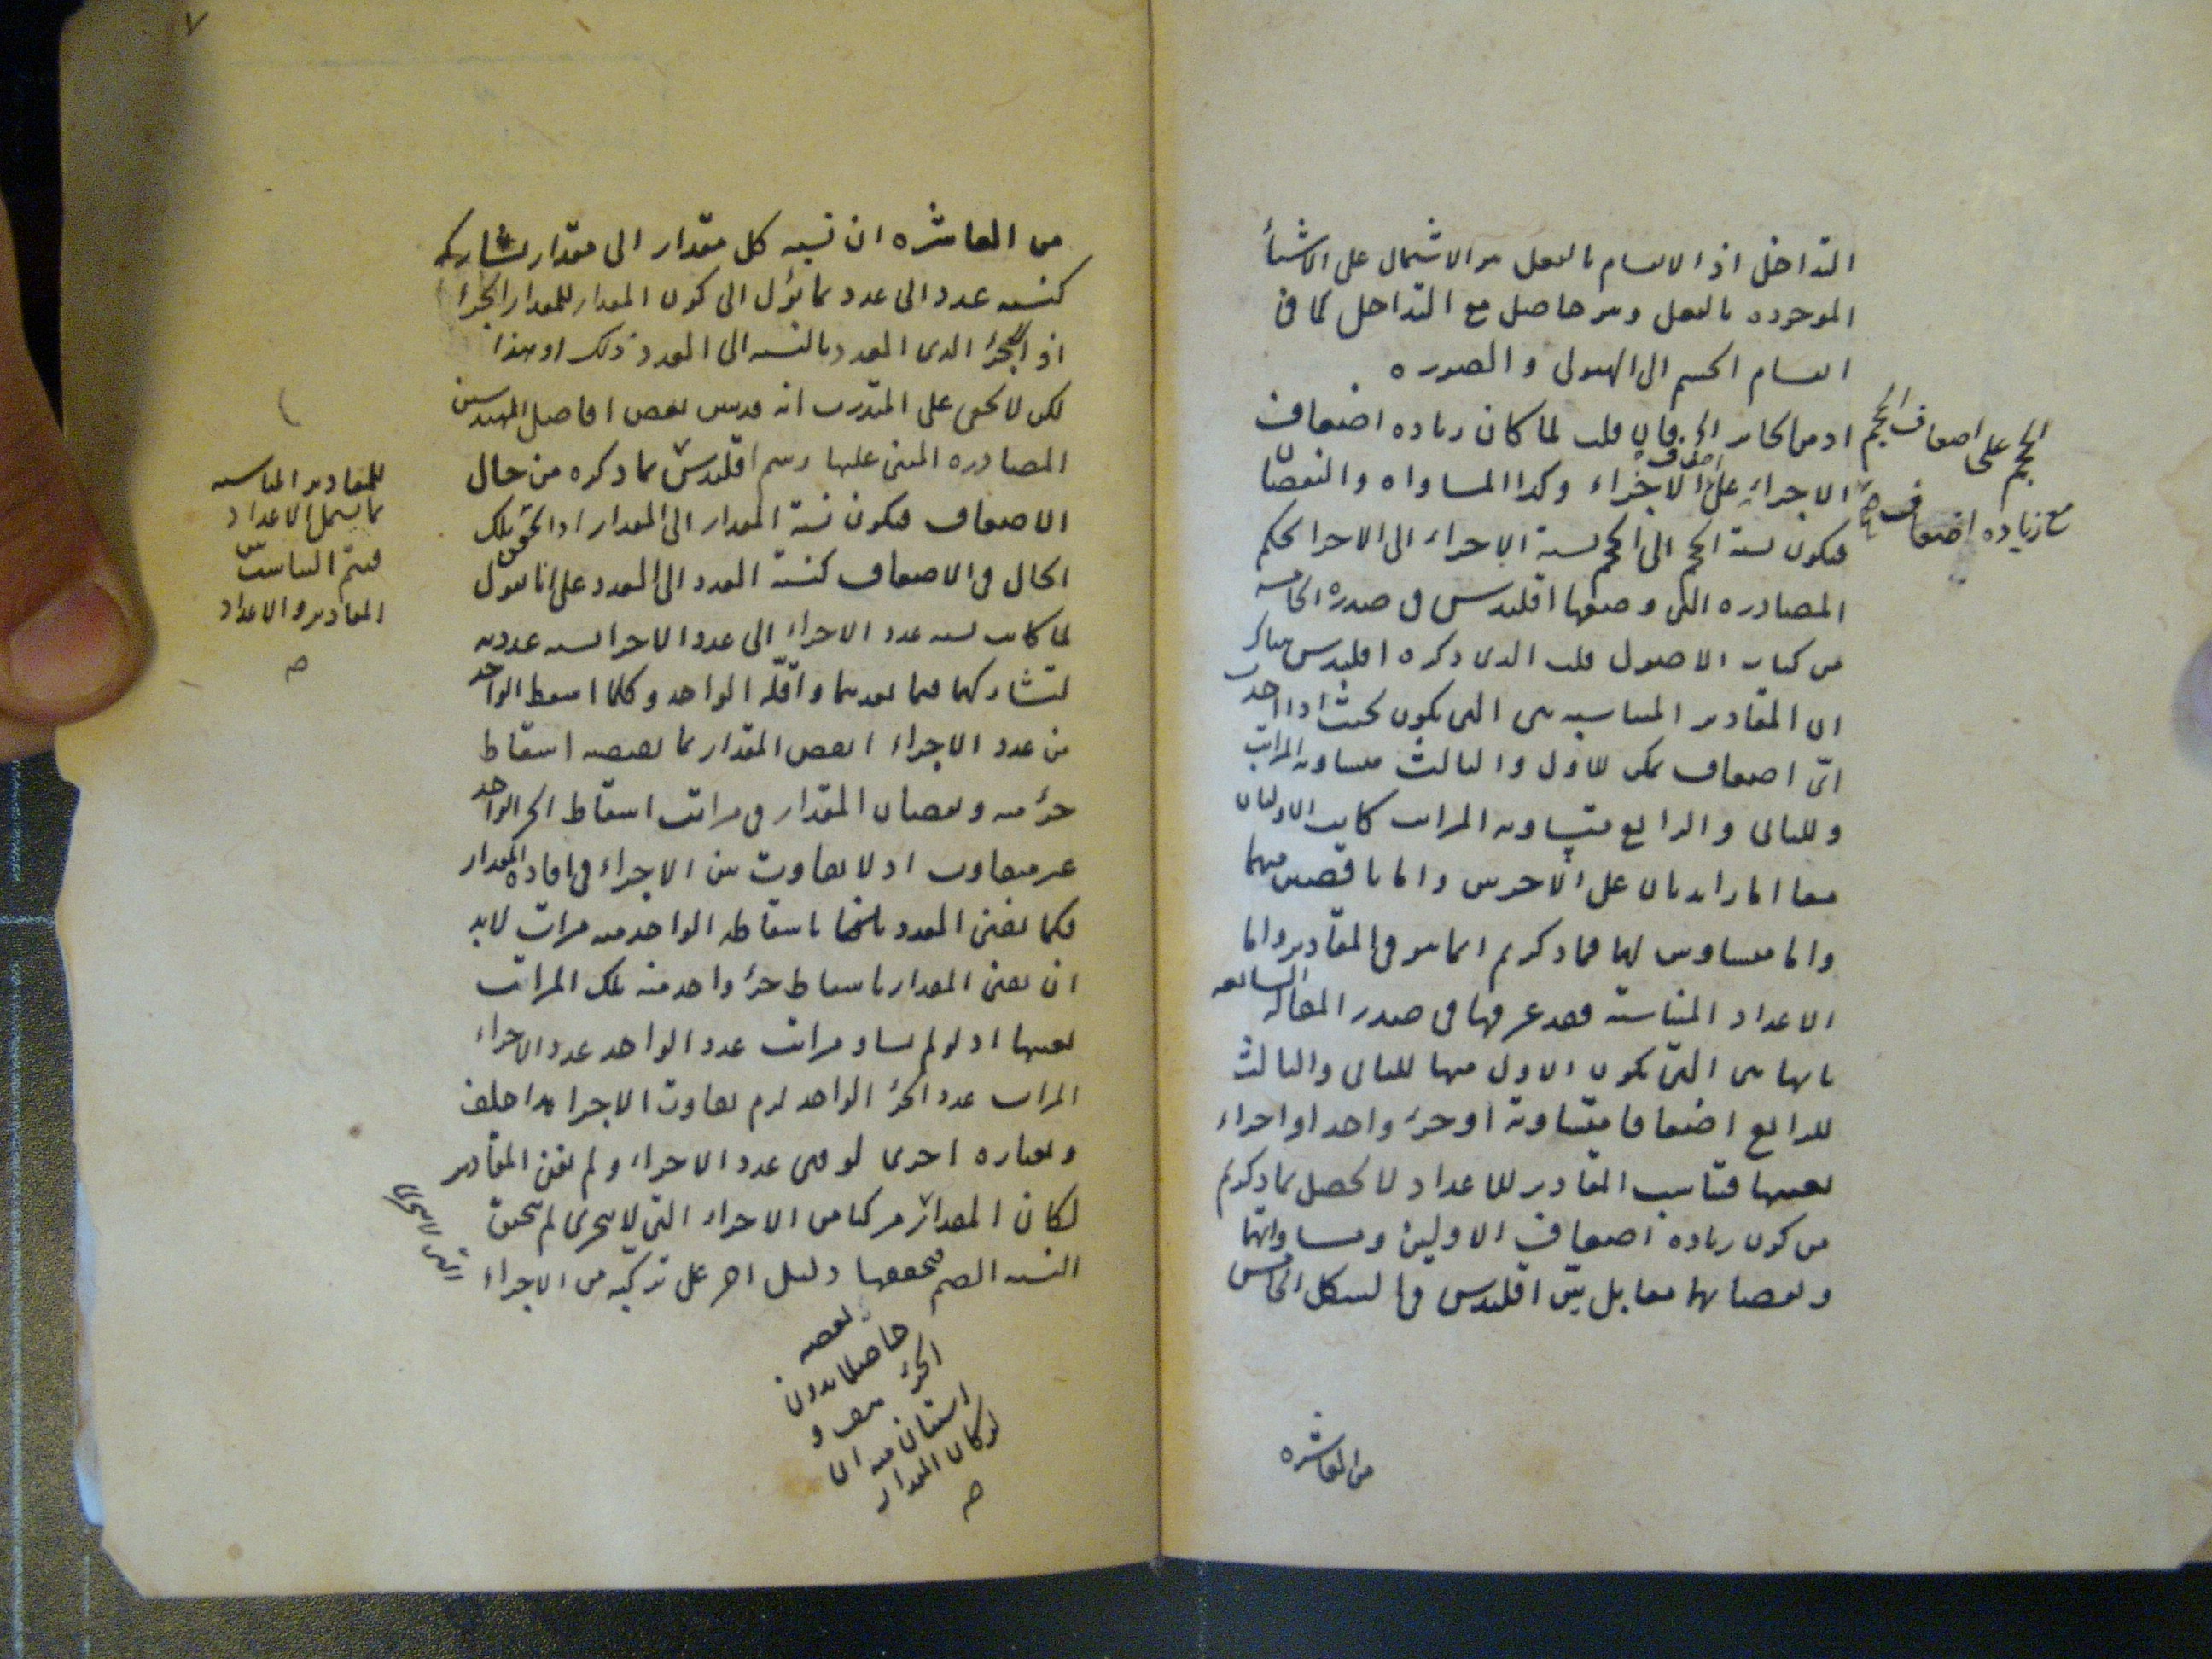 التداخل اذ الانقسام بالفعل هو الاشتمال على الاشياء
الموجوده بالفعل وهو حاصل مع التداخل كما فى
انقسام الجسم الى الهيولى والصوره
فان قلت لما كان زياده اضعاف
الحجم على اضعاف الحجم
مع زياده اضعاف
الاجزاء على اضعاف الاجزاء وكذا المساواه والنقصان
فيكون نسبة الحجم الى الحجم نسبة الاجزاء الى الاجزا بحكم
المصادره التى وضعها اقليدس فى صدر الخامسه
من كتاب الاصول قلت الذى ذكره اقليدس هناك
ان المقادير المتناسبه هى التى يكون بحيث اذا اخذت
اىّ اضعاف يمكن للاول والثالث متساويه المراتب
وللثانى والرابع متساويه المراتب كانت الاوليان
معا اما زايدتان على الاخريين واما ناقصتين منهما
واما مساويين لهما فما ذكرتم انما هو فى المقادير واما
الاعداد المتناسبة فقد عرفها فى صدر المقاله السابعه
بانها هى التى يكون الاول منها للثانى والثالث
للرابع اضعافا متساوية او جزء واحد او اجزاء
بعينها فتناسب المقادير للاعداد لا يحصل بما ذكرتم
من كون زيادة اضعاف الاولين ومساواتهما
ونقصانهما معا بل بيّن اقليدس فى الشكل الخامس
من العاشره
٧
من العاشره ان نسبه كل مقدار الى مقدار يشاركه
كنسبه عدد الى عدد بما يؤل الى كون المقدار للمقدار الجزء
اذ الجزء الذى العدد بالنسبه الى العدد ذلك او هذا
لكن لا يخفى على المتدرب انه قد بين بعض افاضل المهندسين
المصادره المبنى عليها رسم اقليدس بما ذكره من حال
الاضعاف فيكون نسبة المقدار الى المقدار اذا تحقق تلك
الحال فى الاضعاف كنسبة العدد الى العدد على انا نقول
للمقادير المتناسبه
بما يشمل الاعداد
فيتم التناسب بين
المقادير والاعداد
صح
لما كانت نسبه عدد الاجزاء الى عدد الاجزا نسبه عدديه
لتشاركهما فيما يعدهما واقلّه الواحد وكلما اسقط الواحد
من عدد الاجزاء انقص المقدار بما نقصه اسقاط
جزء منه ونقصان المقدار فى مراتب اسقاط الجزء الواحد
غير متفاوت اذ لا تفاوت بين الاجزاء فى افاده المقدار
فكما يفنى العدد باسقاط الواحد منه مرات لابد
ان يفنى المقدار باسقاط جزء واحد منه تلك المراتب
بعينها اذ لو لم يساو مراتب عدد الواحد عدد الاجزاء
المراتب عدد الجزء الواحد لزم تفاوت الاجزا هذا خلف
وبعباره اخرى لو فنى عدد الاجزاء ولم يفن المقادير
لكان المقدار مركبا من الاجزاء التى لا يتجزى لم يتحقق
النسبه الصم فتحققها دليل اخر على تركبه من الاجزاء
التى لا يتجزى
نقصه
حاصلا بدون
الجزء
استبان منه ان
لو كان المقدار
صح